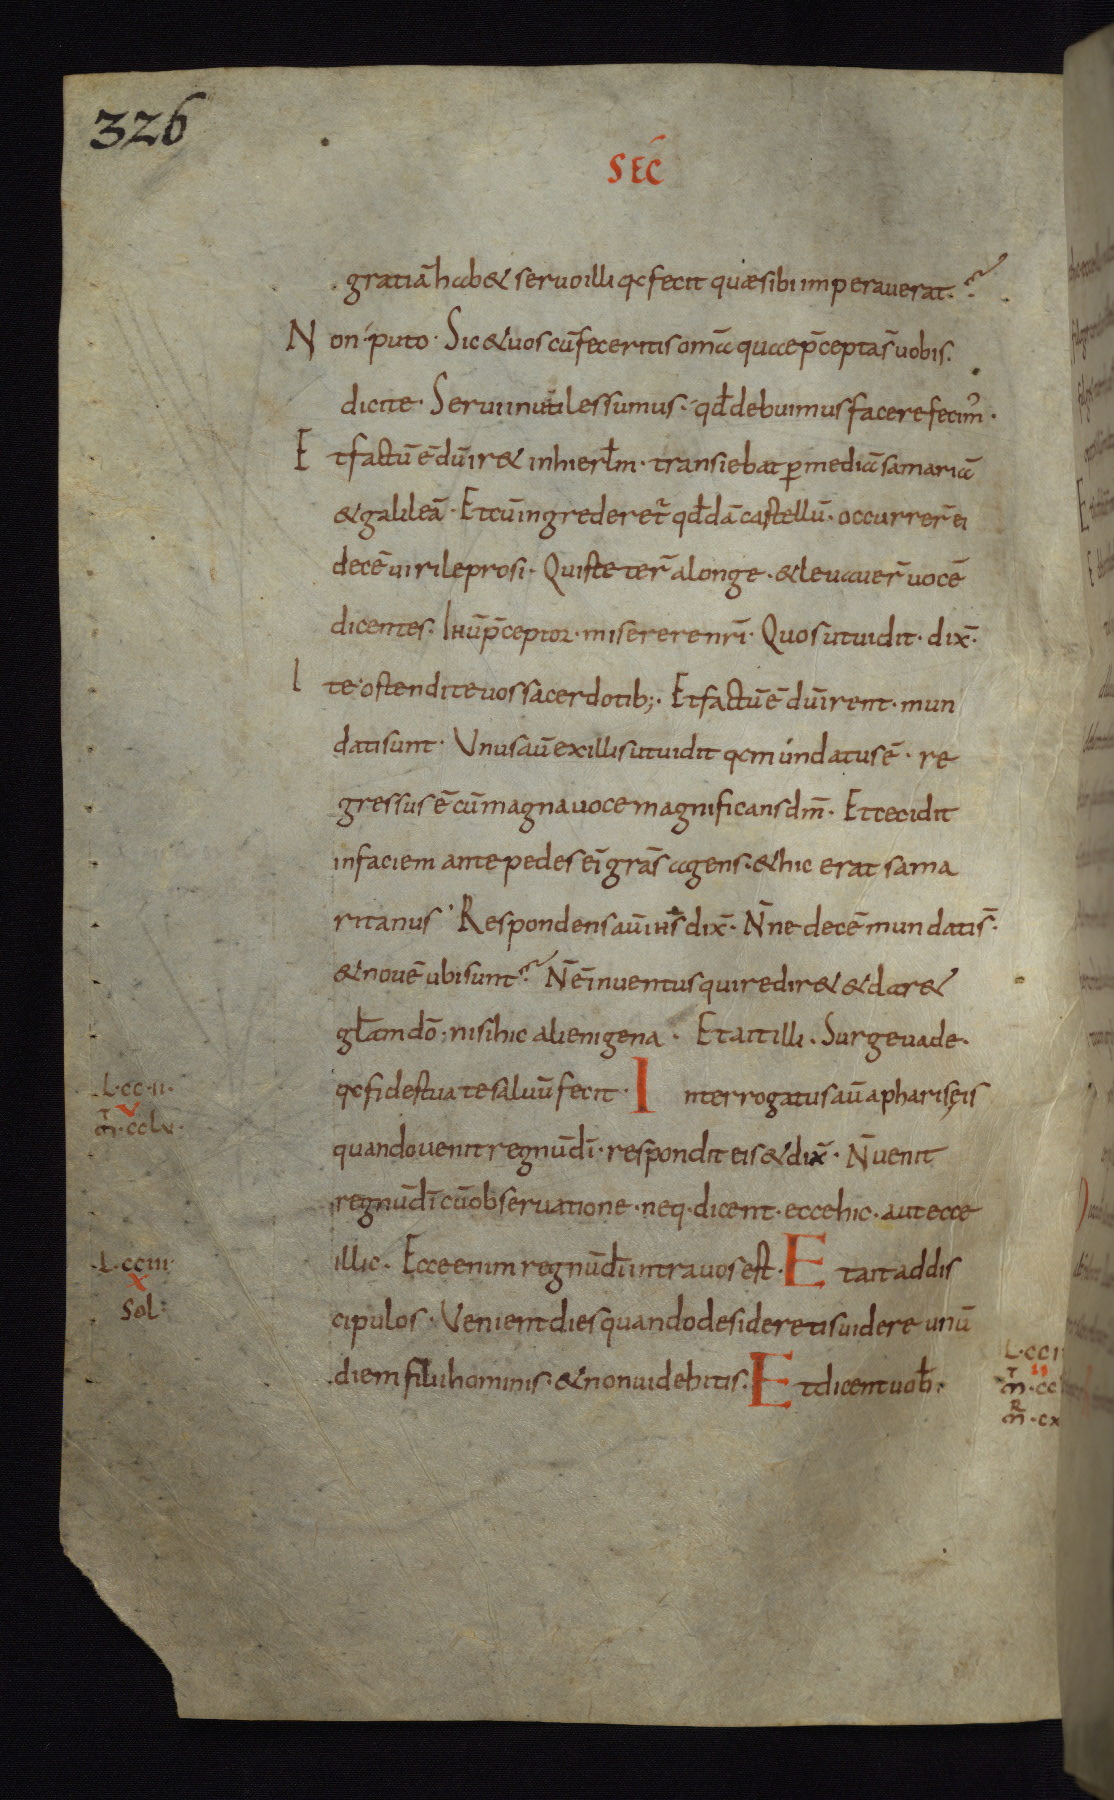 326
SEC̄
gratiā habet seruo illi qa fecit quæ sibi imperauerat.
Non puto. Sic & uos cū feceritis om̄a quae p̄cepta s̄ uobis.
dicite. Serui inutiles sumus. qđ debuimus facere fecim᾿.
Et factū ē dū iret in hierłm. transiebat p mediā samariā
& galileā. Et cū ingrederet᾿ qđdā castellū. occurrer̄ ei
decē uiri leprosi. Qui steter̄ a longe. & leuauer̄ uocē
dicentes. Ihū p̄ceptor. miserere nr̄i. Quos ut uidit. dix̄.
Ite ostendite uos sacerdotib;. Et factū ē dū irent. mun
dati sunt. Unus aū ex illis ut uidit qa mundatus ē. re
gressus ē cū magna uoce magnificans dm̄. Et cecidit
in faciem ante pedes ei᾿ grās agens. & hic erat sama
ritanus. Respondens aū ihs̄ dix̄. N̄ne decē mundati s̄.
& nouē ubi sunt. N̄ ē inuentus qui rediret & daret
głam dō. nisi hic alienigena. Et ait illi. Surge uade.
qa fides tua te saluū fecit. Interrogatus aū a pharisęis
quando uenit regnū dī. respondit eis & dix̄. N̄ uenit
regnū dī cū obseruatione. neq. dicent. ecce hic. aut ecce
illic. Ecce enim regnū dī intra uos est. Et ait ad dis
cipulos. Venient dies quando desideretis uidere unū
diem filii hominis. & non uidebitis. Et dicent uoƀ.
L.cc.ii.
v
m̄.cclv.
L.cciii
x
Sol:
L.cci
ii
m̄.cc
m̄.cx